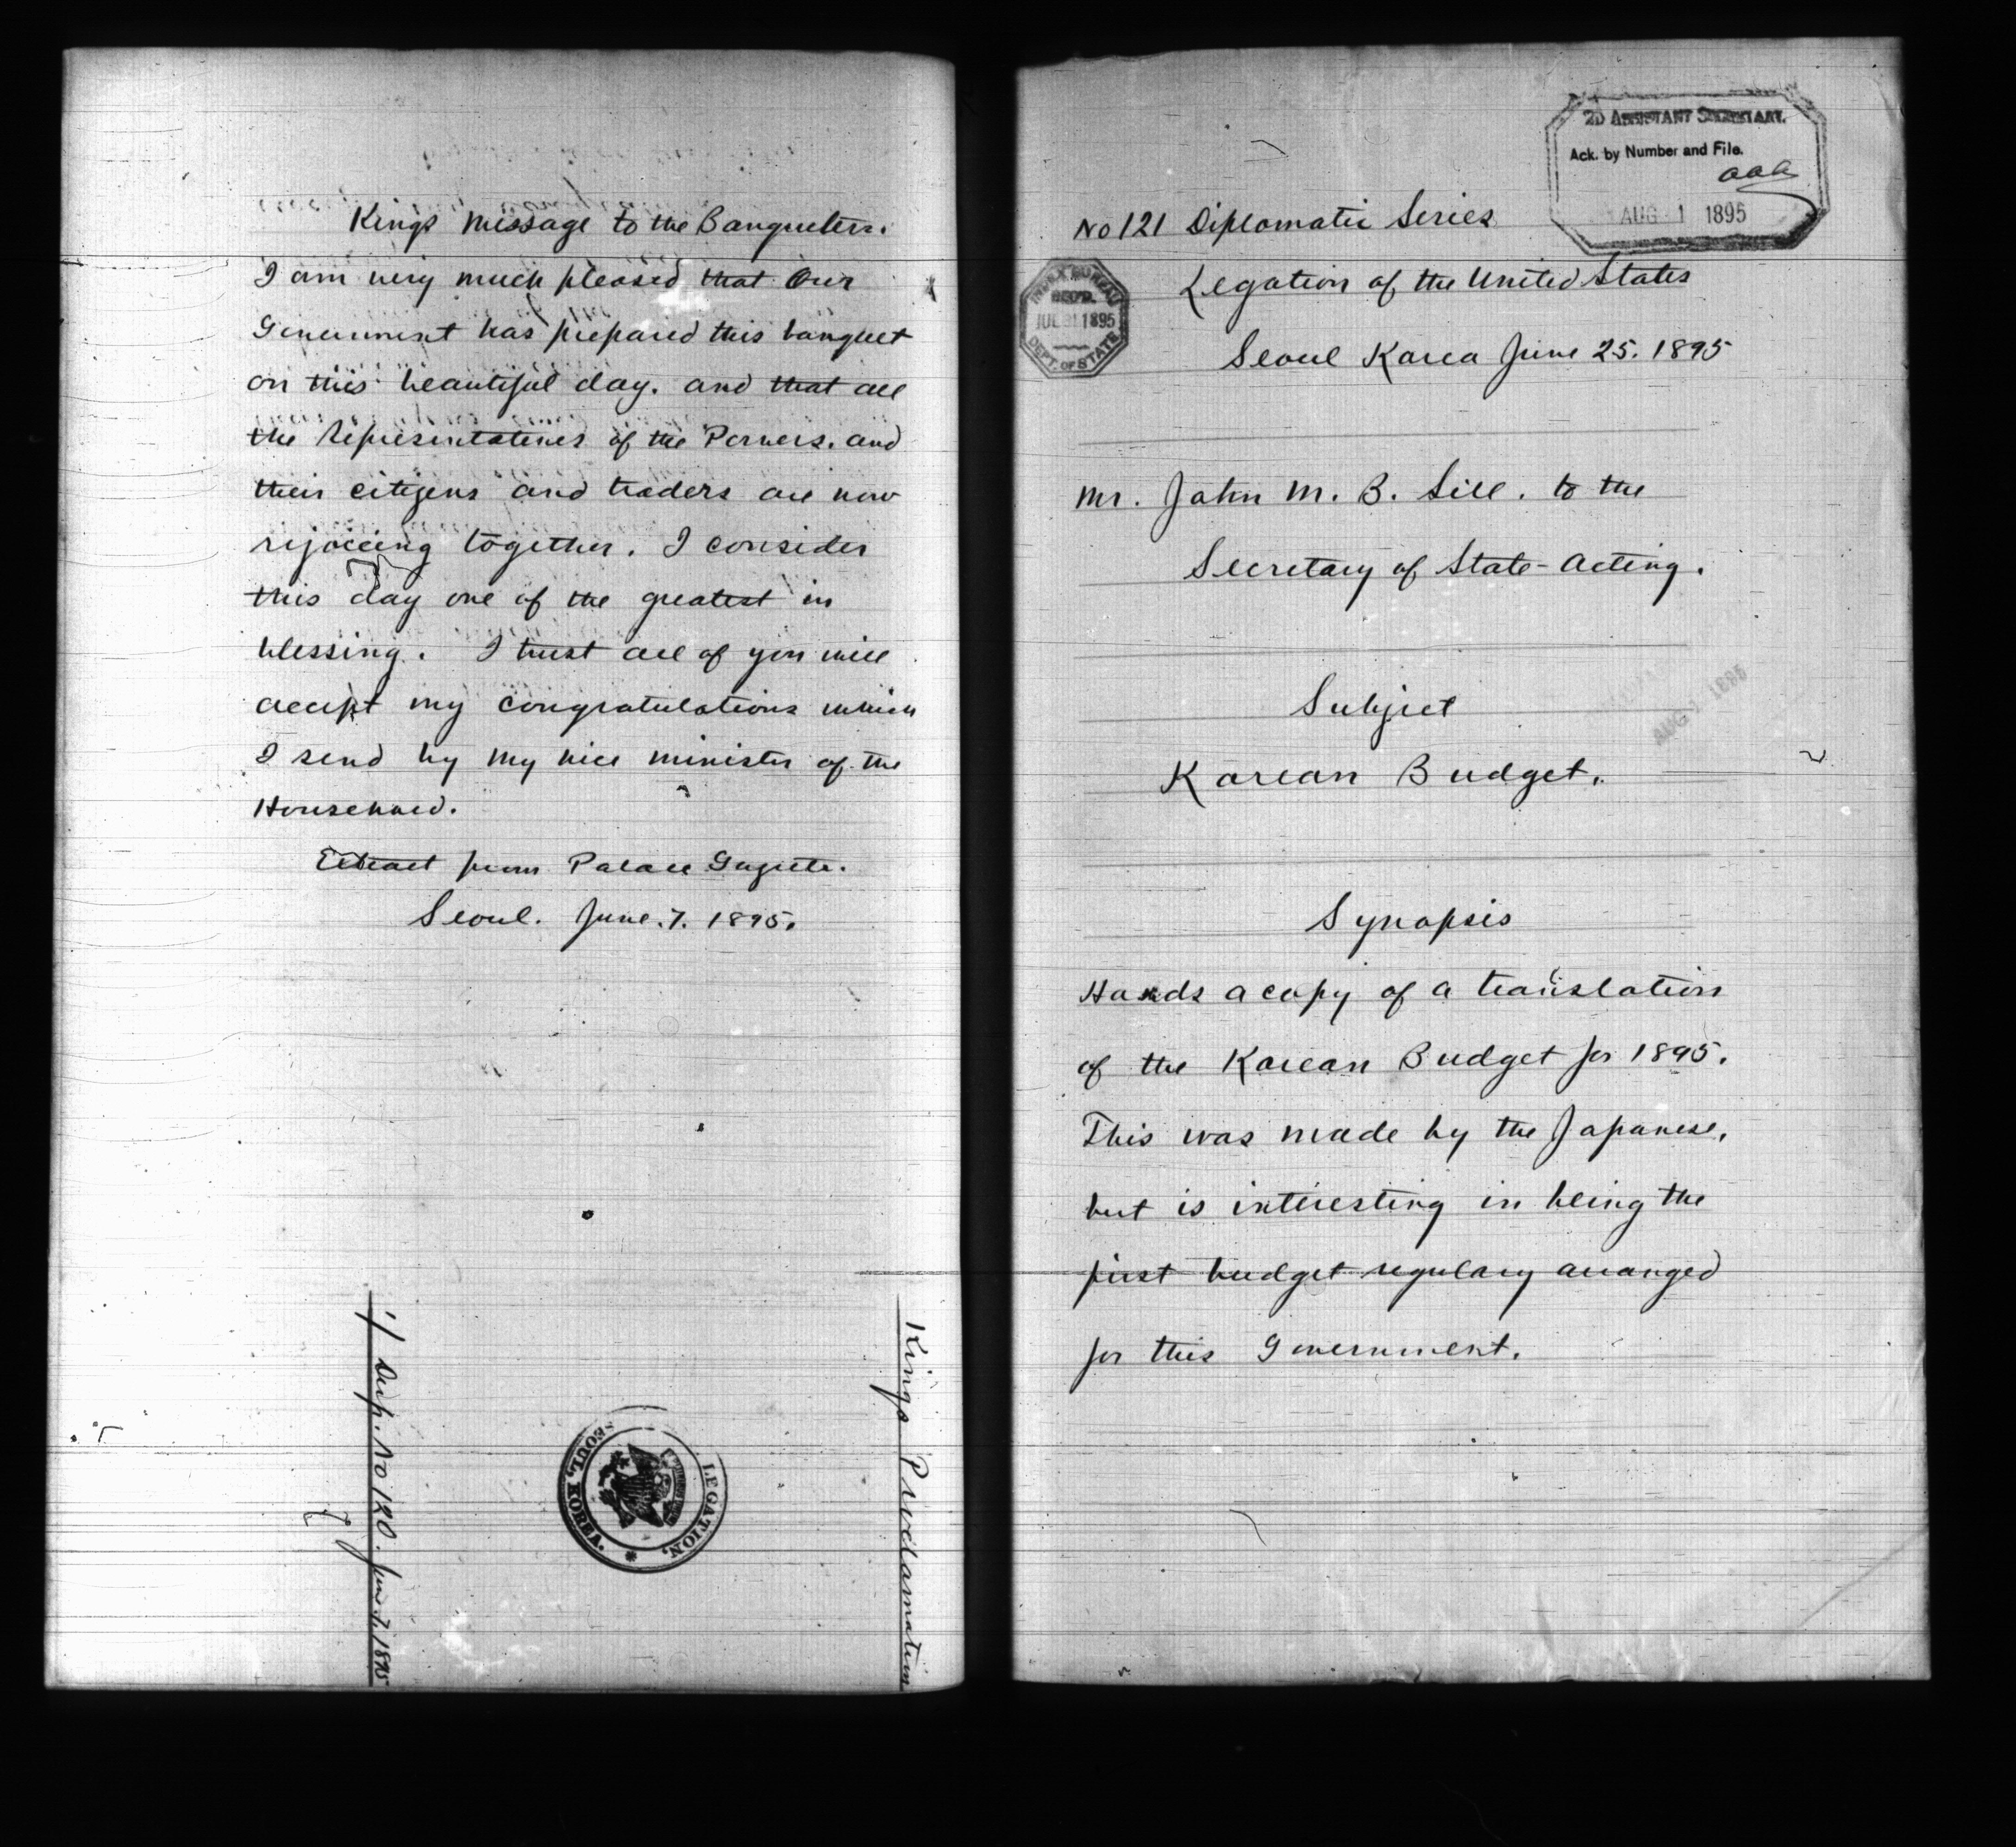 Kings Message to the Banqueters.
I am very much pleased that Our
Government has prepared this banquet
on this beautiful day. and that all
the Representatives of the Powers. and
their citizens and traders are now
rejoicing together. I consider
this day one of the greatest in
blessing. I trust all of you will
accept my congratulations which
I send by my vice minister of the
Household.
Extract from Palace Gazette.
Seoul. June. 7. 1895.
1/ Dep. No 120. June 7, 1895
LEGATION,
SEOUL, KOREA.
Kings Proclamation
2D ASSISTANT SECRETARY.
Ack. by Number and File.
aaa
AUG 1 1895
No 121 Diplomatic Series
INDEX BUREAU
REC'D.
JUL 31 1895
DEPT. OF STATE
Legation of the United States
Seoul Korea June 25. 1895
Mr. John M. B. Sill. to the
Secretary of State - Acting.
Subject
AUG 1 1895
Korean Budget.
Synopsis
Hands a copy of a translation
of the Korean Budget for 1895.
This was made by the Japanese,
but is interesting in being the
first budget regulary arranged
for this Government.